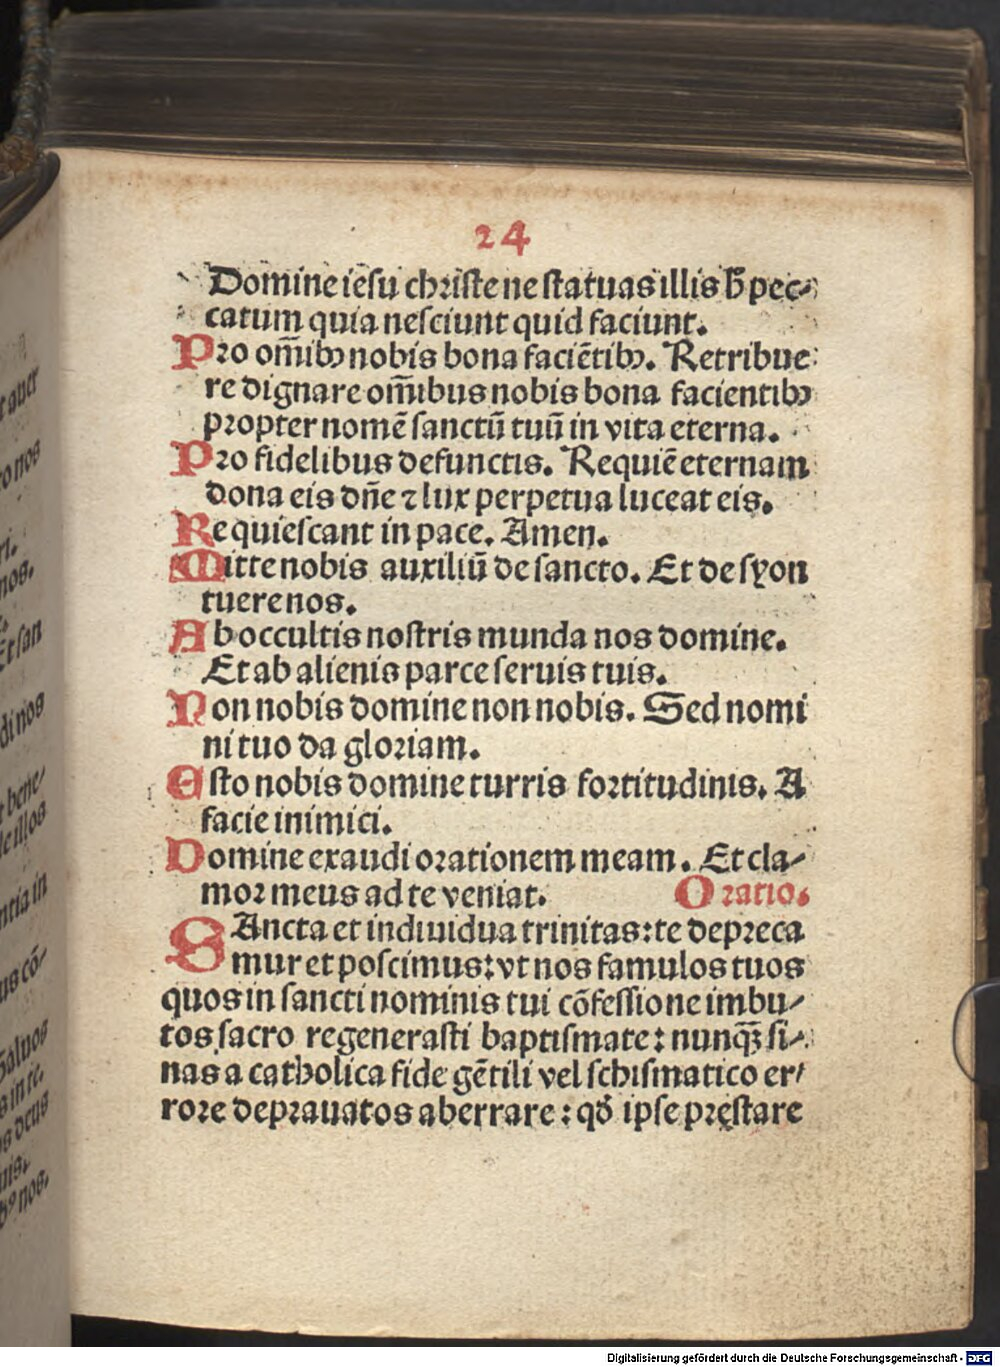 24
Domine iesu christe ne statuas illis h̄ pec⸗
catum quia nesciunt quid faciunt.
Pro om̄ibꝫ nobis bona faciētibꝫ. Retribue
re dignare om̄ibus nobis bona facientibꝫ
propter nomē sanctū tuū in vita eterna.
Pro fidelibus defunctis. Requiē eternam
dona eis dn̄e ⁊ lux perpetua luceat eis.
Requiescant in pace. Amen.
Mitte nobis auxiliū de sancto. Et de syon
tuere nos.
Ab occultis nostris munda nos domine.
Et ab alienis parce seruis tuis.
Non nobis domine non nobis. Sed nomi
ni tuo da gloriam.
Esto nobis domine turris fortitudinis. A
facie inimici.
Domine exaudi orationem meam. Et cla⸗
mor meus ad te veniat. Oratio.
SAncta et indiuidua trinitas: te depreca
mur et poscimus: vt nos famulos tuos
quos in sancti nominis tui cōfessione imbu⸗
tos sacro regenerasti baptismate: nunqꝫ si⸗
nas a catholica fide gētili vel schismatico er⸗
rore deprauatos aberrare: qđ ipse pręstare
Digitalisierung gefördert durch die Deutsche Forschungsgemeinschaft - DFG